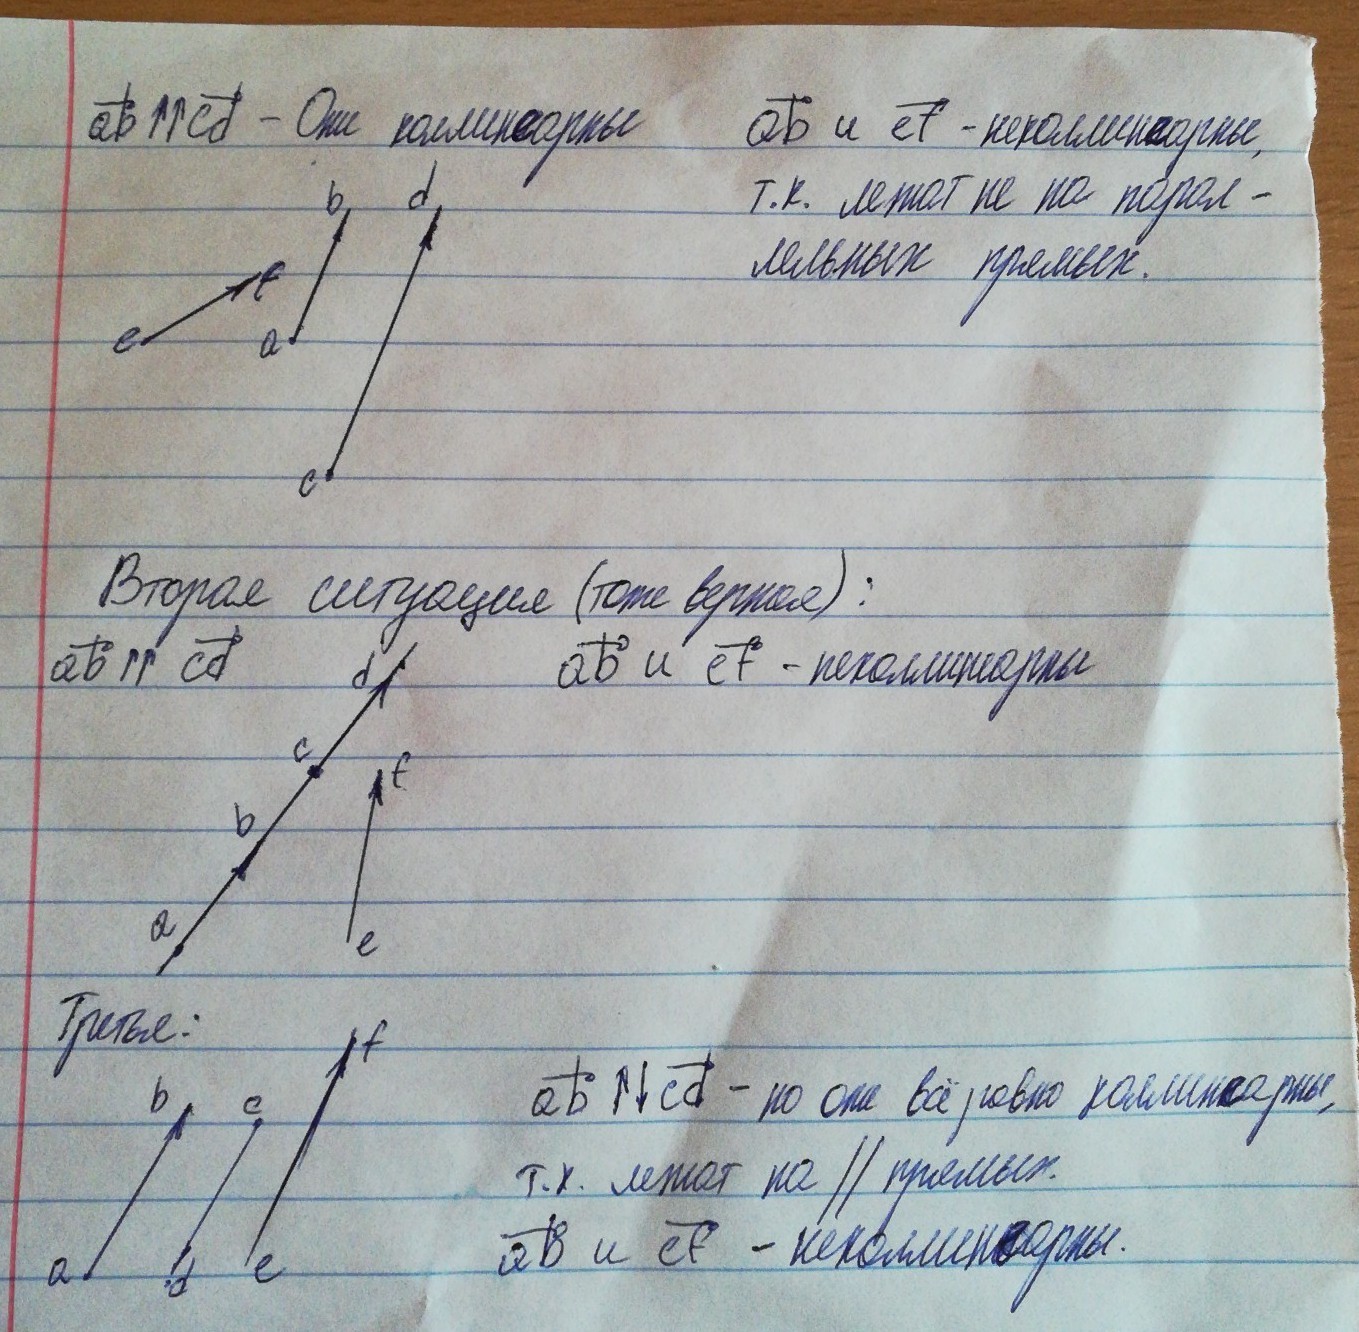 ab⃗ ↑↑ cd⃗ - Они коллинеарны
ab⃗ и ef⃗ - неколлинеарны,
т.к. лежат не на парал-
лельных прямых.
b d
f
e a
c
Вторая ситуация (тоже верная):
ab⃗ ↑↑ cd⃗
ab⃗ и ef⃗ - неколлинеарны
d
c
f
b
a
e
Третья:
f
b c
ab⃗ ↑↓ cd⃗ - но они всё равно коллинеарны,
т.к. лежат на // прямых.
a d e
ab⃗ и ef⃗ - неколлинеарны.